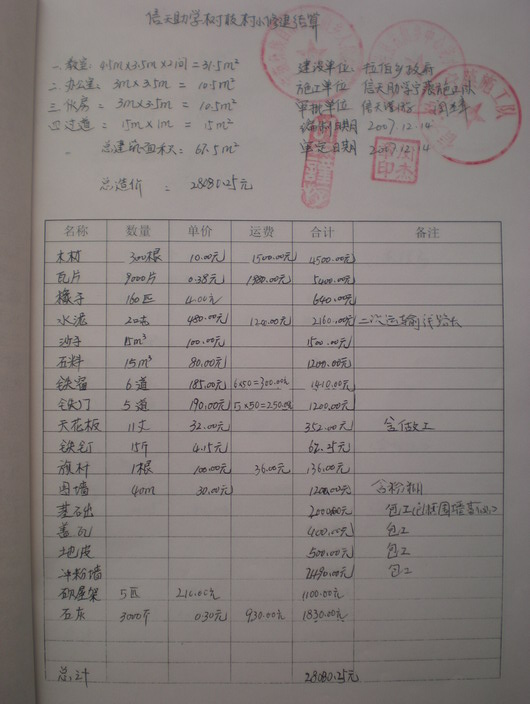 信天助学树枝村小修建结算
一.教室: 4.5m×3.5m×2间=31.5m² 建设单位: 拉伯乡政府
二.办公室: 3m×3.5m = 10.5m² 施工单位 信天助学宁蒗施工队
三.伙房: 3m×3.5m = 10.5m² 审批单位
四.过道: 15m×1m = 15m² 编制日期 2007.12.14
总建筑面积: 67.5m² 审定日期 2007.12.14
总造价: 28080.25元
名称 数量 单价 运费 合计 备注
木材 300根 10.00元 1500.00元 4500.00元
瓦片 9000片 0.38元 1980.00元 5400.00元
椽子 160匹 4.00元 640.00元
水泥 2吨 480.00元 1240.00元 2160.00元 二次运输
沙子 15m³ 100.00元 1500.00元
石料 15m³ 80.00元 1200.00元
铁窗 6道 185.00元 6×50=300.00元 1410.00元
铁门 5道 190.00元 5×50=250.00元 1200.00元
天花板 11丈 32.00元 352.00元 含做工
铁钉 15斤 4.15元 62.25元
旗杆 1根 100.00元 36.00元 136.00元
围墙 40m 30.00元 1200.00元 含粉糊
基础 2000.00元 包工
盖瓦 400.00元 包工
地皮 500.00元 包工
冲粉墙 2490.00元 包工
砍屋架 5匹 1100.00元
石灰 3000斤 0.30元 930.00元 1830.00元
总计 28080.25元